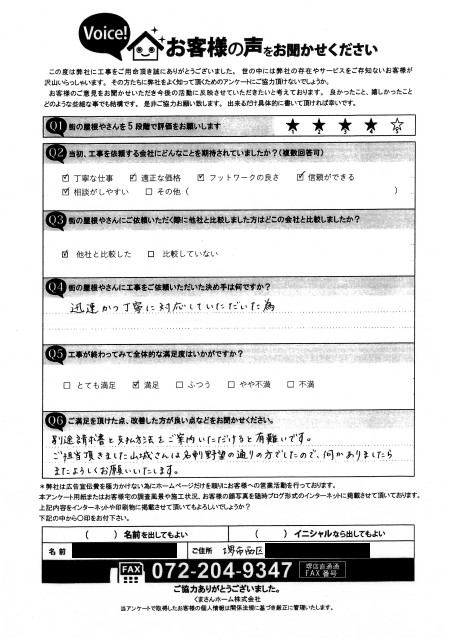 Voice!
お客様の声をお聞かせください
この度は弊社に工事をご用命頂き誠にありがとうございました。世の中には弊社の存在やサービスをご存知ないお客様が
沢山いらっしゃいます。その方たちに弊社をよく知って頂くためのアンケートにご協力頂けないでしょうか。
お客様のご意見をお聞かせいただき今後の活動に反映させていただきたいと考えております。良かったこと、嬉しかったこと
どのような些細な事でも結構です。是非ご協力お願い致します。出来るだけ具体的に書いて頂ければ幸いです。
Q1 街の屋根やさんを5段階で評価をお願いします ★ ★ ★ ★ ☆
Q2 当初、工事を依頼する会社にどんなことを期待されていましたか？(複数回答可)
☑ 丁寧な仕事 ☑ 適正な価格 ☑ フットワークの良さ ☑ 信頼ができる
☑ 相談がしやすい □ その他 ( )
Q3 街の屋根やさんにご依頼いただく際に他社と比較しました方はどこの会社と比較しましたか？
☑ 他社と比較した □ 比較していない
Q4 街の屋根やさんに工事をご依頼いただいた決め手は何ですか？
迅速かつ丁寧に対応していただいた為
Q5 工事が終わってみて全体的な満足度はいかがですか？
□ とても満足 ☑ 満足 □ ふつう □ やや不満 □ 不満
Q6 ご満足を頂けた点、改善した方が良い点などをお聞かせください。
別途請求書と支払方法をご案内いただけると有難いです。
ご担当頂きました山城さんは名刺野望の通りの方でしたので、何かありましたら
またよろしくお願いいたします。
*弊社は広告宣伝費を極力かけない為にホームページだけを頼りにお客様への営業活動を行っております。
本アンケート用紙またはお客様宅の調査風景や施工状況、お客様の顔写真を随時ブログ形式のインターネットに掲載させて頂いております。
上記内容をインターネットや印刷物に掲載させて頂いてもよろしいでしょうか？
下記の中から〇印をお付下さい。
( ) 名前を出してもよい ( ) イニシャルなら出してもよい
名前 ご住所 堺市西区
FAX 072-204-9347 堺店直通 FAX番号
ご協力ありがとうございました。
くまさんホーム株式会社
当アンケートで取得したお客様の個人情報は関係法規に基づき厳正に管理いたします。